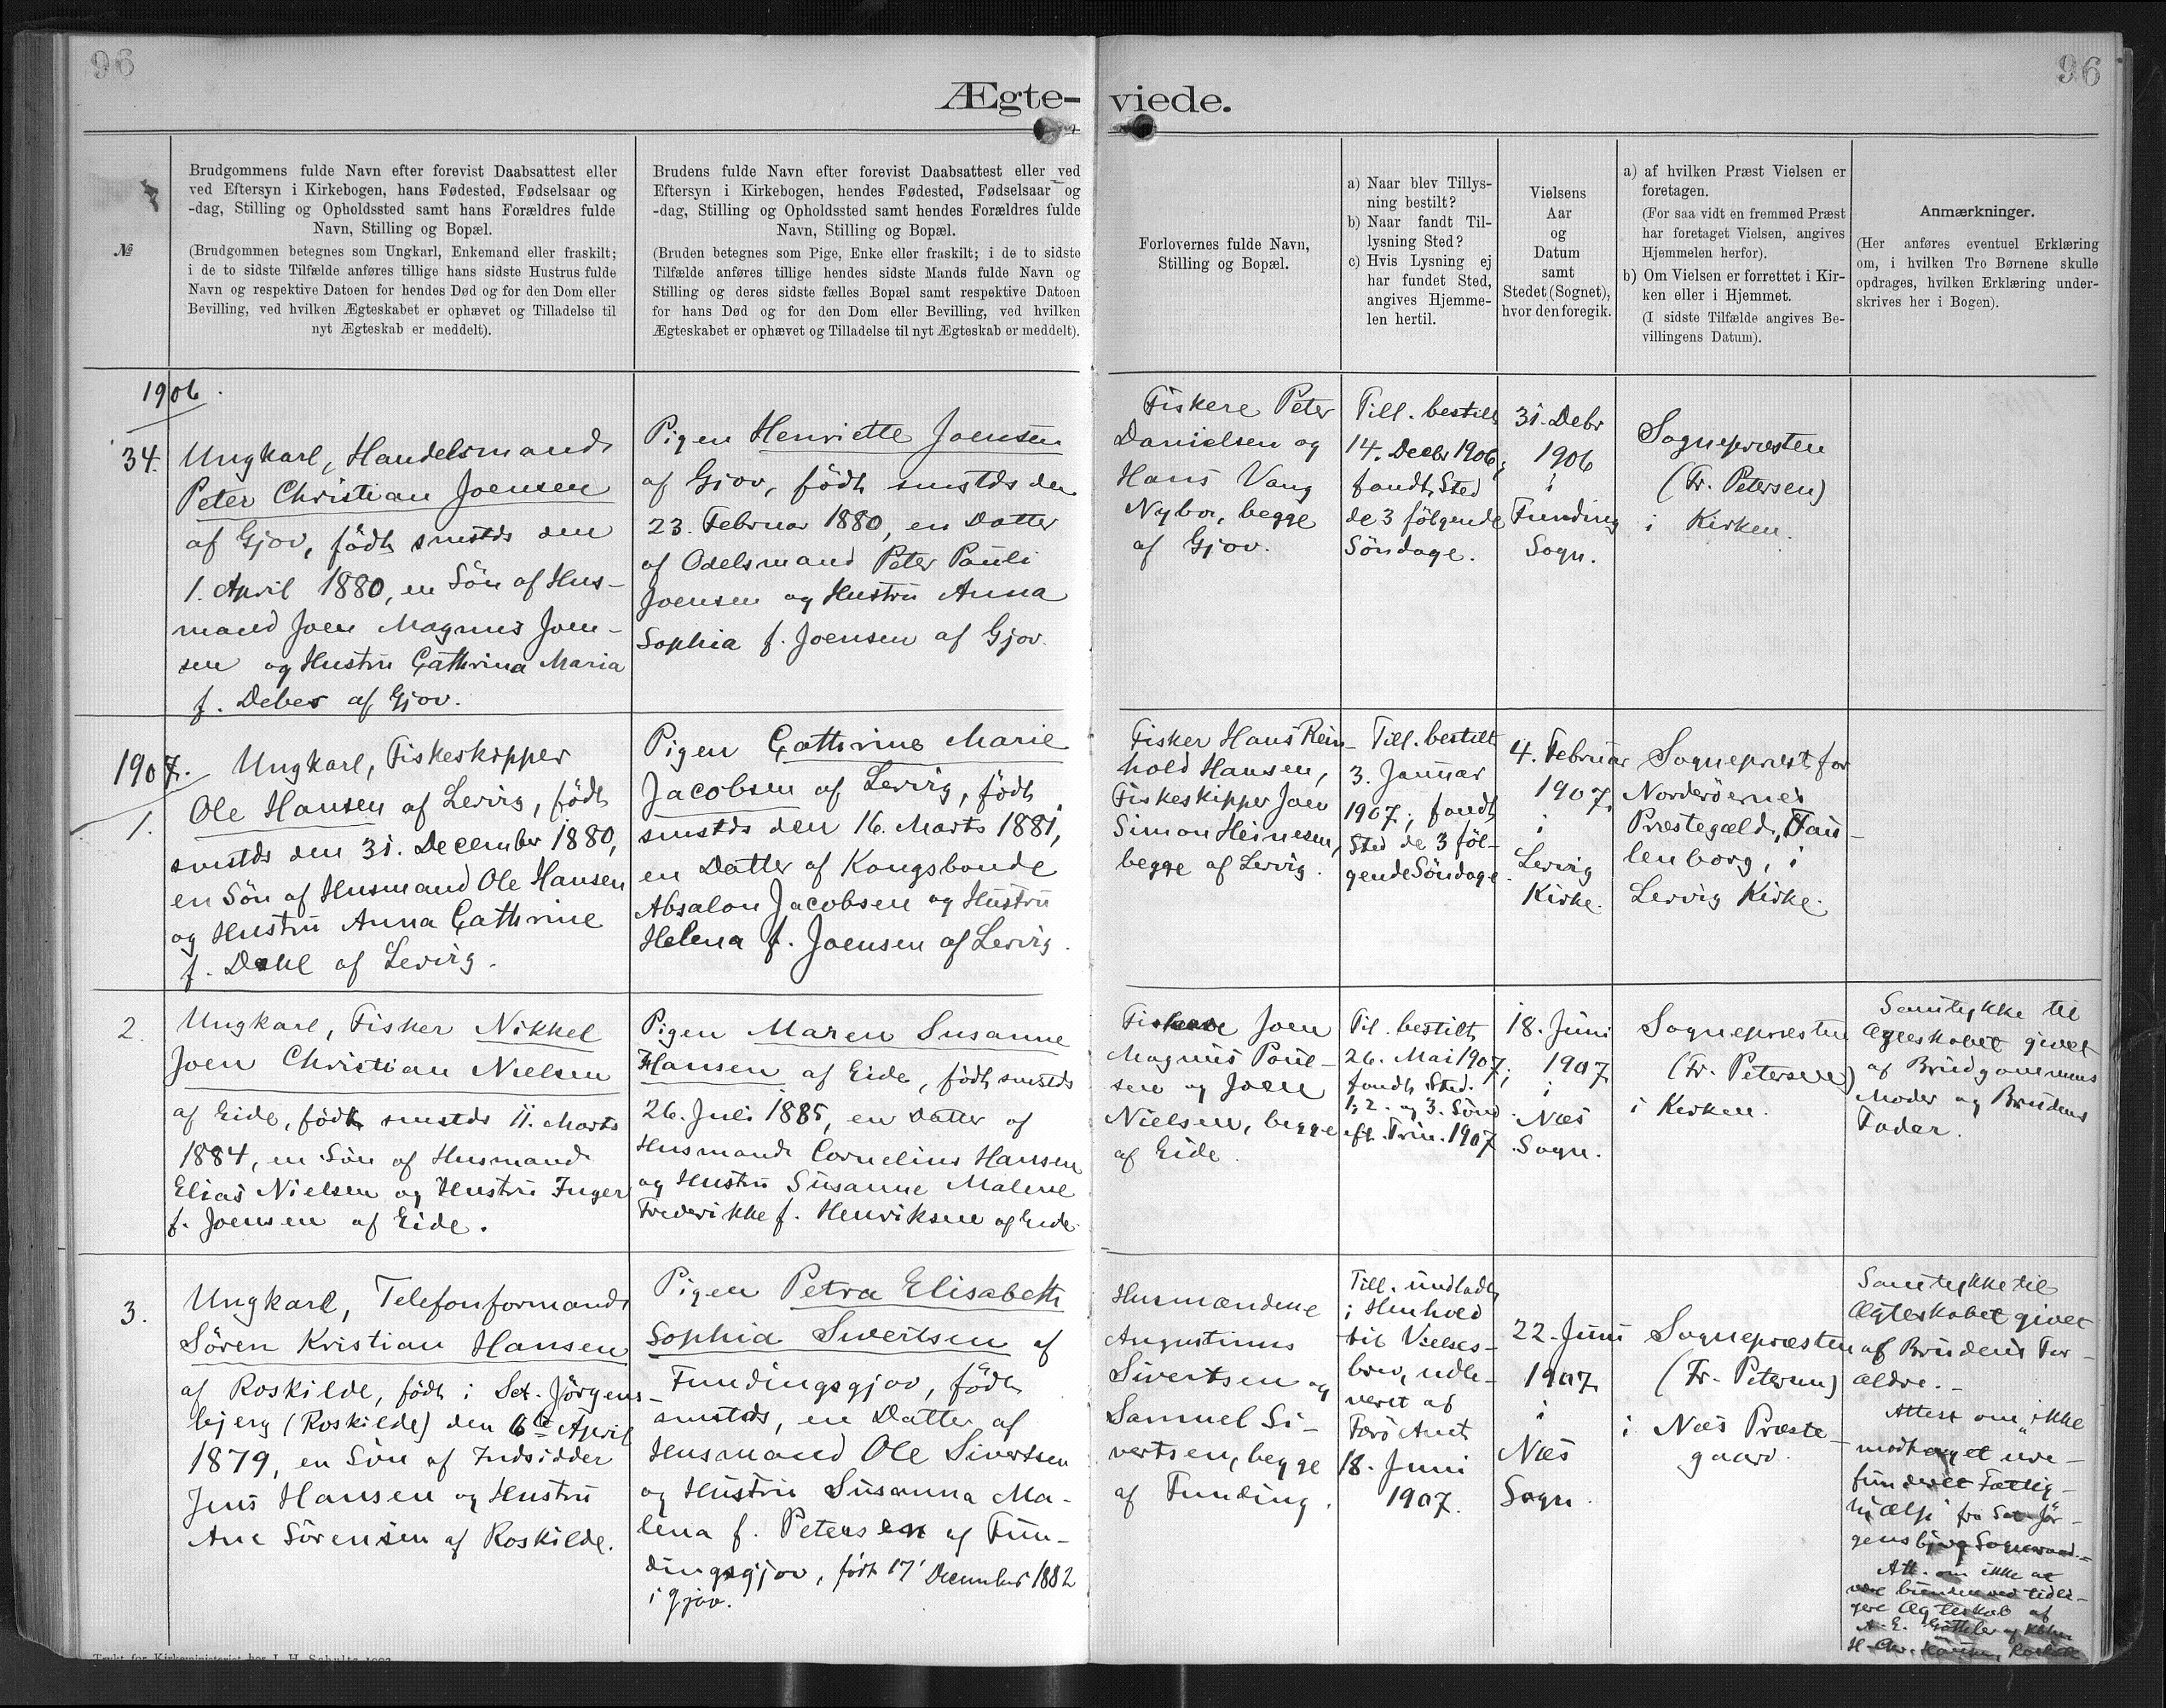 96
96
Ægte-
viede.
№
Brudgommens fulde Navn efter forevist Daabsattest eller
ved Eftersyn i Kirkebogen, hans Fødested, Fødselsaar og
-dag, Stilling og Opholdssted samt hans Forældres fulde
Navn, Stilling og Bopæl.
(Brudgommen betegnes som Ungkarl, Enkemand eller fraskilt;
i de to sidste Tilfælde anføres tillige hans sidste Hustrus fulde
Navn og respektive Datoen for hendes Død og for den Dom eller
Bevilling, ved hvilken Ægteskabet er ophævet og Tilladelse til
nyt Ægteskab er meddelt).
Brudens fulde Navn efter forevist Daabsattest eller ved
Eftersyn i Kirkebogen, hendes Fødested, Fødselsaar og
-dag, Stilling og Opholdssted samt hendes Forældres fulde
Navn, Stilling og Bopæl.
(Bruden betegnes som Pige, Enke eller fraskilt; i de to sidste
Tilfælde anføres tillige hendes sidste Mands fulde Navn og
Stilling og deres sidste fælles Bopæl samt respektive Datoen
for hans Død og for den Dom eller Bevilling, ved hvilken
Ægteskabet er ophævet og Tilladelse til nyt Ægteskab er meddelt).
Forlovernes fulde Navn,
Stilling og Bopæl.
a) Naar blev Tillys-
ning bestilt?
b) Naar fandt Til-
lysning Sted?
c) Hvis Lysning ej
har fundet Sted,
angives Hjemme-
len hertil.
Vielsens
Aar
og
Datum
samt
Stedet (Sognet),
hvor den foregik.
a) af hvilken Præst Vielsen er
foretagen.
(For saa vidt en fremmed Præst
har foretaget Vielsen, angives
Hjemmelen herfor).
b) Om Vielsen er forrettet i Kir-
ken eller i Hjemmet.
(I sidste Tilfælde angives Be-
villingens Datum).
Anmærkninger.
(Her anføres eventuel Erklæring
om, i hvilken Tro Børnene skulle
opdrages, hvilken Erklæring under-
skrives her i Bogen).
1906.
34.
Ungkarl, Handelsmand
Peter Christian Joensen
af Gjov, født smstds den
1. April 1880, en Søn af Hus-
mand Joen Magnus Joen-
sen og Hustru Cathrina Maria
f. Debes af Gjov.
Pigen Henriette Joensen
af Gjov, født smstds den
23. Februar 1880, en Datter
af Odelsmand Peter Pauli
Joensen og Hustru Anna
Sophia f. Joensen af Gjov.
Fiskere Peter
Danielsen og
Hans Vang
Nybo, begge
af Gjov.
Till. bestilt
14. Decbr 1906;
fandt Sted
de 3 følgende
Søndage.
31. Debr
1906
i
Funding
Sogn.
Sognepræsten
(Fr. Petersen)
i Kirken.
1907.
1.
Ungkarl, Fiskeskipper
Ole Hansen af Lervig, født
smstds den 31. December 1880,
en Søn af Husmand Ole Hansen
og Hustru Anna Cathrine
f. Dahl af Lervig.
Pigen Cathrine Marie
Jacobsen af Lervig, født
smstds den 16. Marts 1881,
en Datter af Kongsbonde
Absalon Jacobsen og Hustru
Helena f. Joensen af Lervig.
Fisker Hans Rein-
hold Hansen,
Fiskeskipper Joen
Simon Heinesen,
begge af Lervig.
Till. bestilt
3. Januar
1907; fandt
Sted de 3 føl-
gende Søndage.
4. Februar
1907,
i
Lervig
Kirke.
Sognepræst for
Norderøernes
Præstegæld, Fau-
lenborg, i
Lervig Kirke.
2.
Ungkarl, Fisker Nikkel
Joen Christian Nielsen
af Eide, født smstds 11. Marts
1884, en Søn af Husmand
Elias Nielsen og Hustru Inger
f. Joensen af Eide.
Pigen Maren Susanne
Hansen af Eide, født smstds
26. Juli 1885, en Datter af
Husmand Cornelius Hansen
og Hustru Susanne Malene
Frederikke f. Henriksen af Eide.
Fiskere Joen
Magnus Poul-
sen og Joen
Nielsen, begge
af Eide.
Til. bestilt
26. Mai 1907;
fandt Sted
1, 2. og 3. Sønd.
eft. Trin. 1907
18. Juni
1907
i
Næs
Sogn.
Sognepræsten
(Fr. Petersen)
i Kirken.
Samtykke til
Ægteskabet givet
af Brudgommens
Moder og Brudens
Fader.
3.
Ungkarl, Telefonformand
Søren Kristian Hansen
af Roskilde, født i Sct. Jørgens-
bjerg (Roskilde) den 6te April
1879, en Søn af Indsidder
Jens Hansen og Hustru
Ane Sørensen af Roskilde.
Pigen Petra Elisabeth
Sophia Sivertsen af
Fundingsgjov, født
smstds, en Datter af
Husmand Ole Sivertsen
og Hustru Susanna Ma-
lena f. Petersen af Fun-
dingsgjov, født 17' December 1882
i Gjov.
Husmændene
Augustinus
Sivertsen og
Samuel Si-
vertsen, begge
af Funding.
Till. undladt
i Henhold
til Vielses-
brev, udle-
veret af
Færø Amt
18. Juni
1907.
22. Juni
1907
i
Næs
Sogn.
Sognepræsten
(Fr. Petersen)
i Næs Præste-
gaard.
Samtykke til
Ægteskabet givet
af Brudens For-
ældre.-
Attest om "ikke
modtaget ure-
funderet Fattig-
hjælp" fra Sct. Jør-
gensbjerg Sogneraad.-
Att. om ikke at
være bunden ved tidli-
gere Ægteskab af